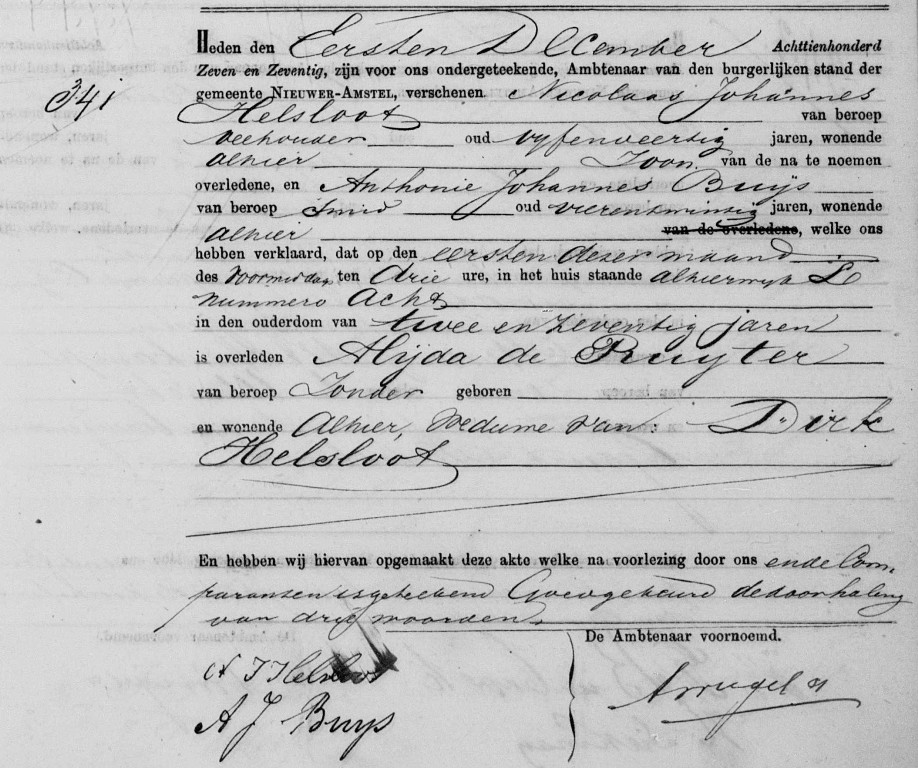 341
Heden den Eersten December Achttienhonderd
Zeven en Zeventig, zijn voor ons ondergeteekende, Ambtenaar van den burgerlijken stand der
gemeente NIEUWER-AMSTEL, verschenen Nicolaas Johannes
Helsloot van beroep
veehouder oud vyfenveertig jaren, wonende
alhier Zoon van de na te noemen
overledene, en Anthonie Johannes Buijs
van beroep Smid oud vierentwintig jaren, wonende
alhier van de overledene, welke ons
hebben verklaard, dat op den eersten dezer maand
des Voormiddag, ten drie ure, in het huis staande alhier wyk L
nummero Acht
in den ouderdom van twee en zeventig jaren
is overleden Alijda de Ruyter
van beroep Zonder geboren
en wonende Alhier, Weduwe van: Dirk
Helsloot
En hebben wij hiervan opgemaakt deze akte welke na voorlezing door ons en de Com,
paranten is geteekend Goedgekeurd de doorhaling
van drie woorden.
De Ambtenaar voornoemd.
N J Helsloot
A J Buys